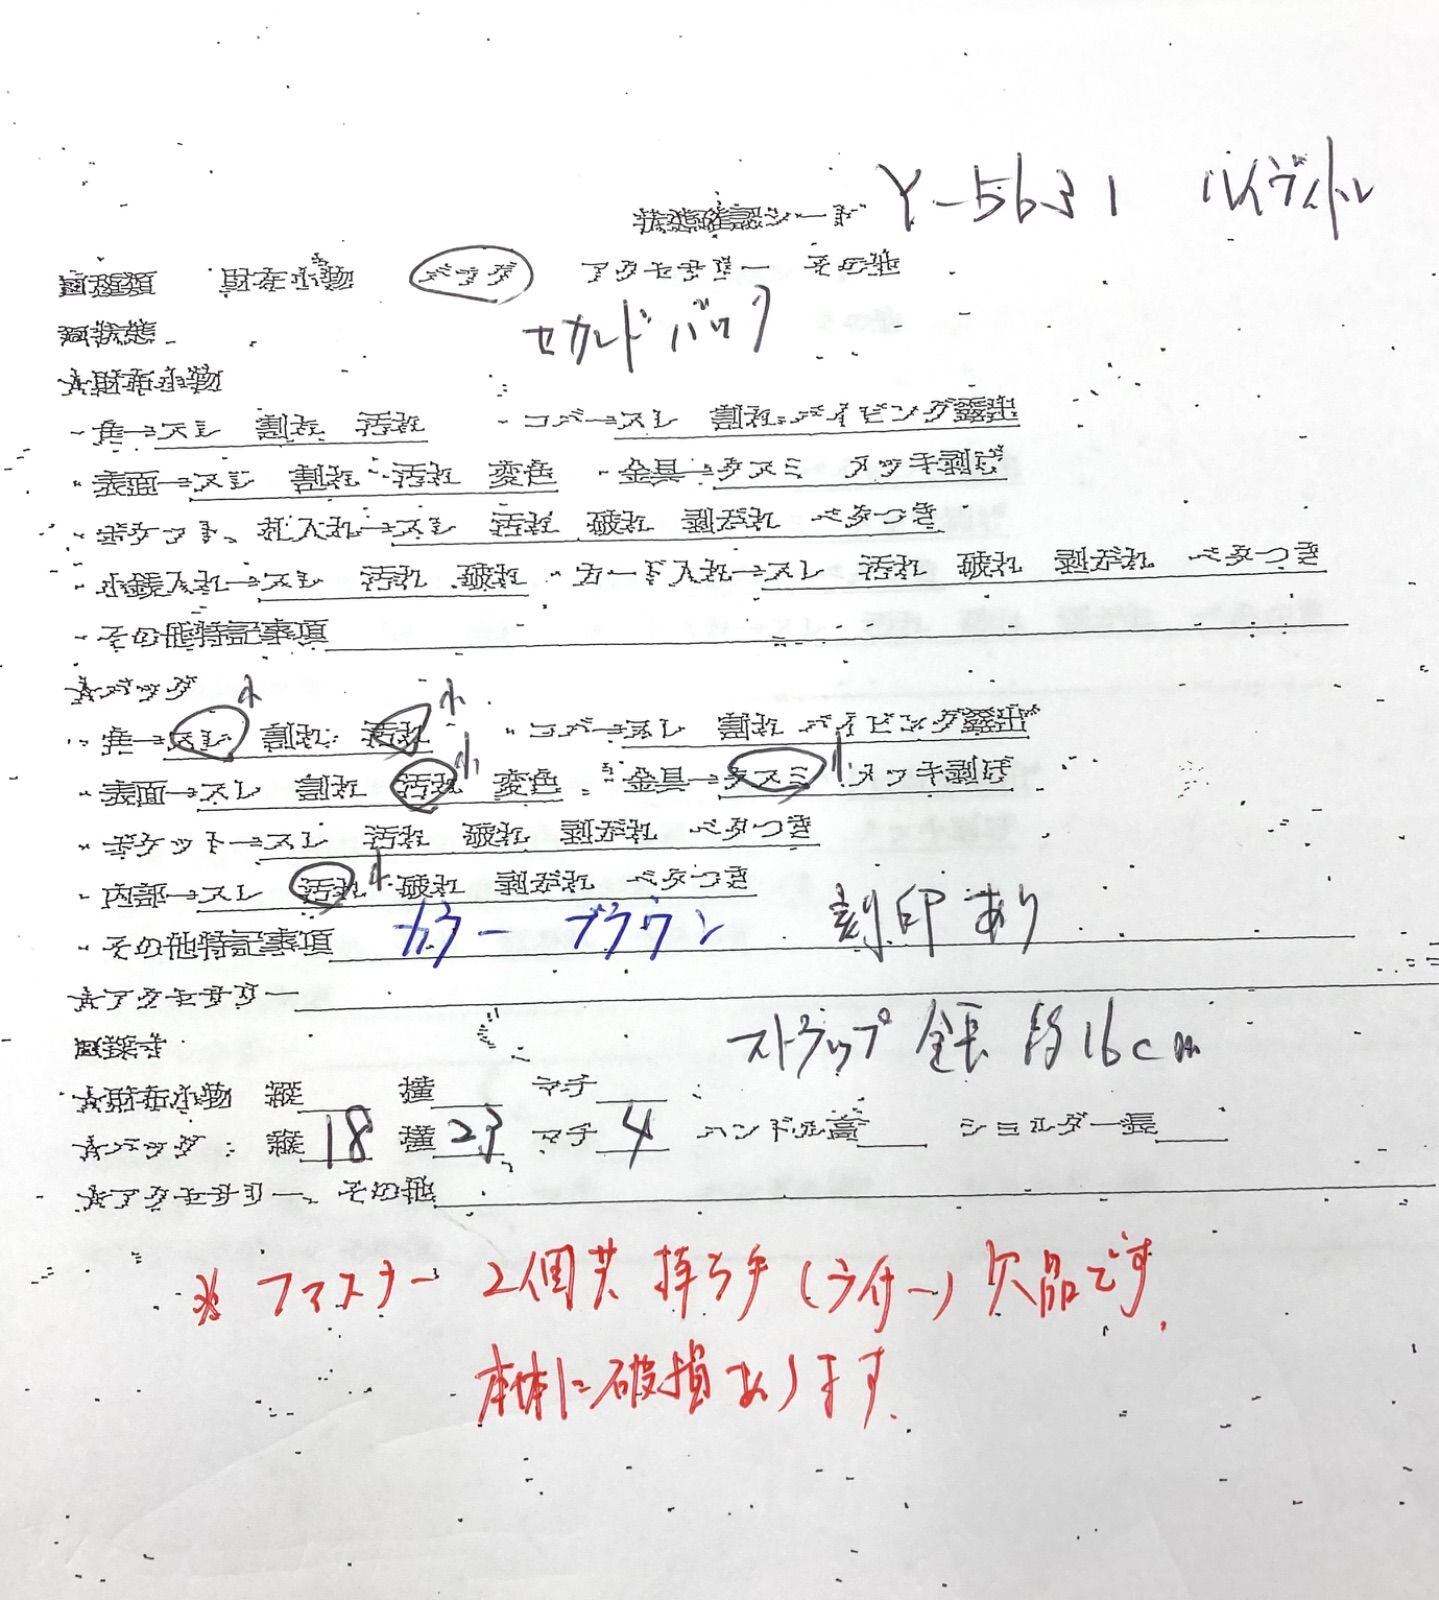 状態確認シート Y-5631 ルイヴィトン
■種類 財布小物 バッグ アクセサリー その他
■状態 セカンドバック
☆財布小物
・角→スレ 割れ 汚れ ・コバ→スレ 割れ パイピング露出
・表面→スレ 割れ 汚れ 変色 ・金具→クスミ メッキ剥げ
・ポケット、札入れ→スレ 汚れ 破れ 剥がれ ベタつき
・小銭入れ→スレ 汚れ 破れ ・カード入れ→スレ 汚れ 破れ 剥がれ ベタつき
・その他特記事項
☆バッグ
・角→スレ小 割れ 汚れ小 ・コバ→スレ 割れ パイピング露出
・表面→スレ 割れ 汚れ小 変色 ・金具→クスミ小 メッキ剥げ
・ポケット→スレ 汚れ 破れ 剥がれ ベタつき
・内部→スレ 汚れ小 破れ 剥がれ ベタつき
・その他特記事項 カラー ブラウン 刻印あり
☆アクセサリー
■採寸 ストラップ 全長 約16cm
☆財布小物 縦 横 マチ
☆バッグ 縦18 横23 マチ4 ハンドル高 ショルダー長
☆アクセサリー、その他
※ ファスナー 2個共 持ち手(ライナー)欠品です。
本体に破損あります。